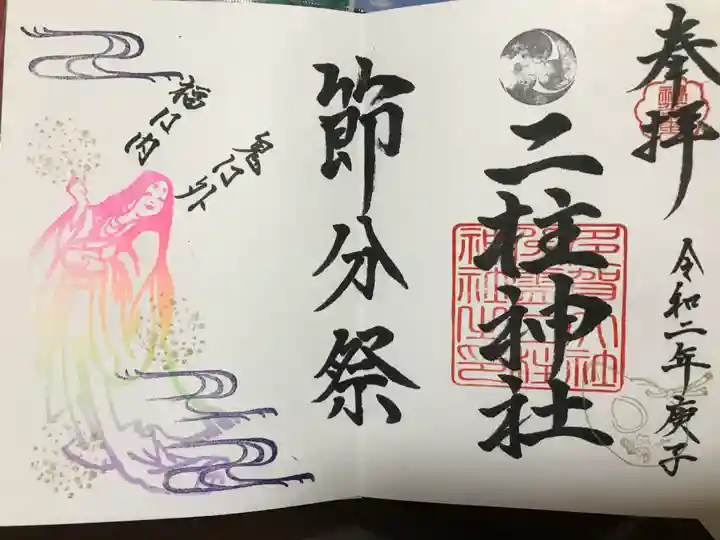 奉拝
二柱神社
令和二年庚子
節分祭
鬼は外
福は内